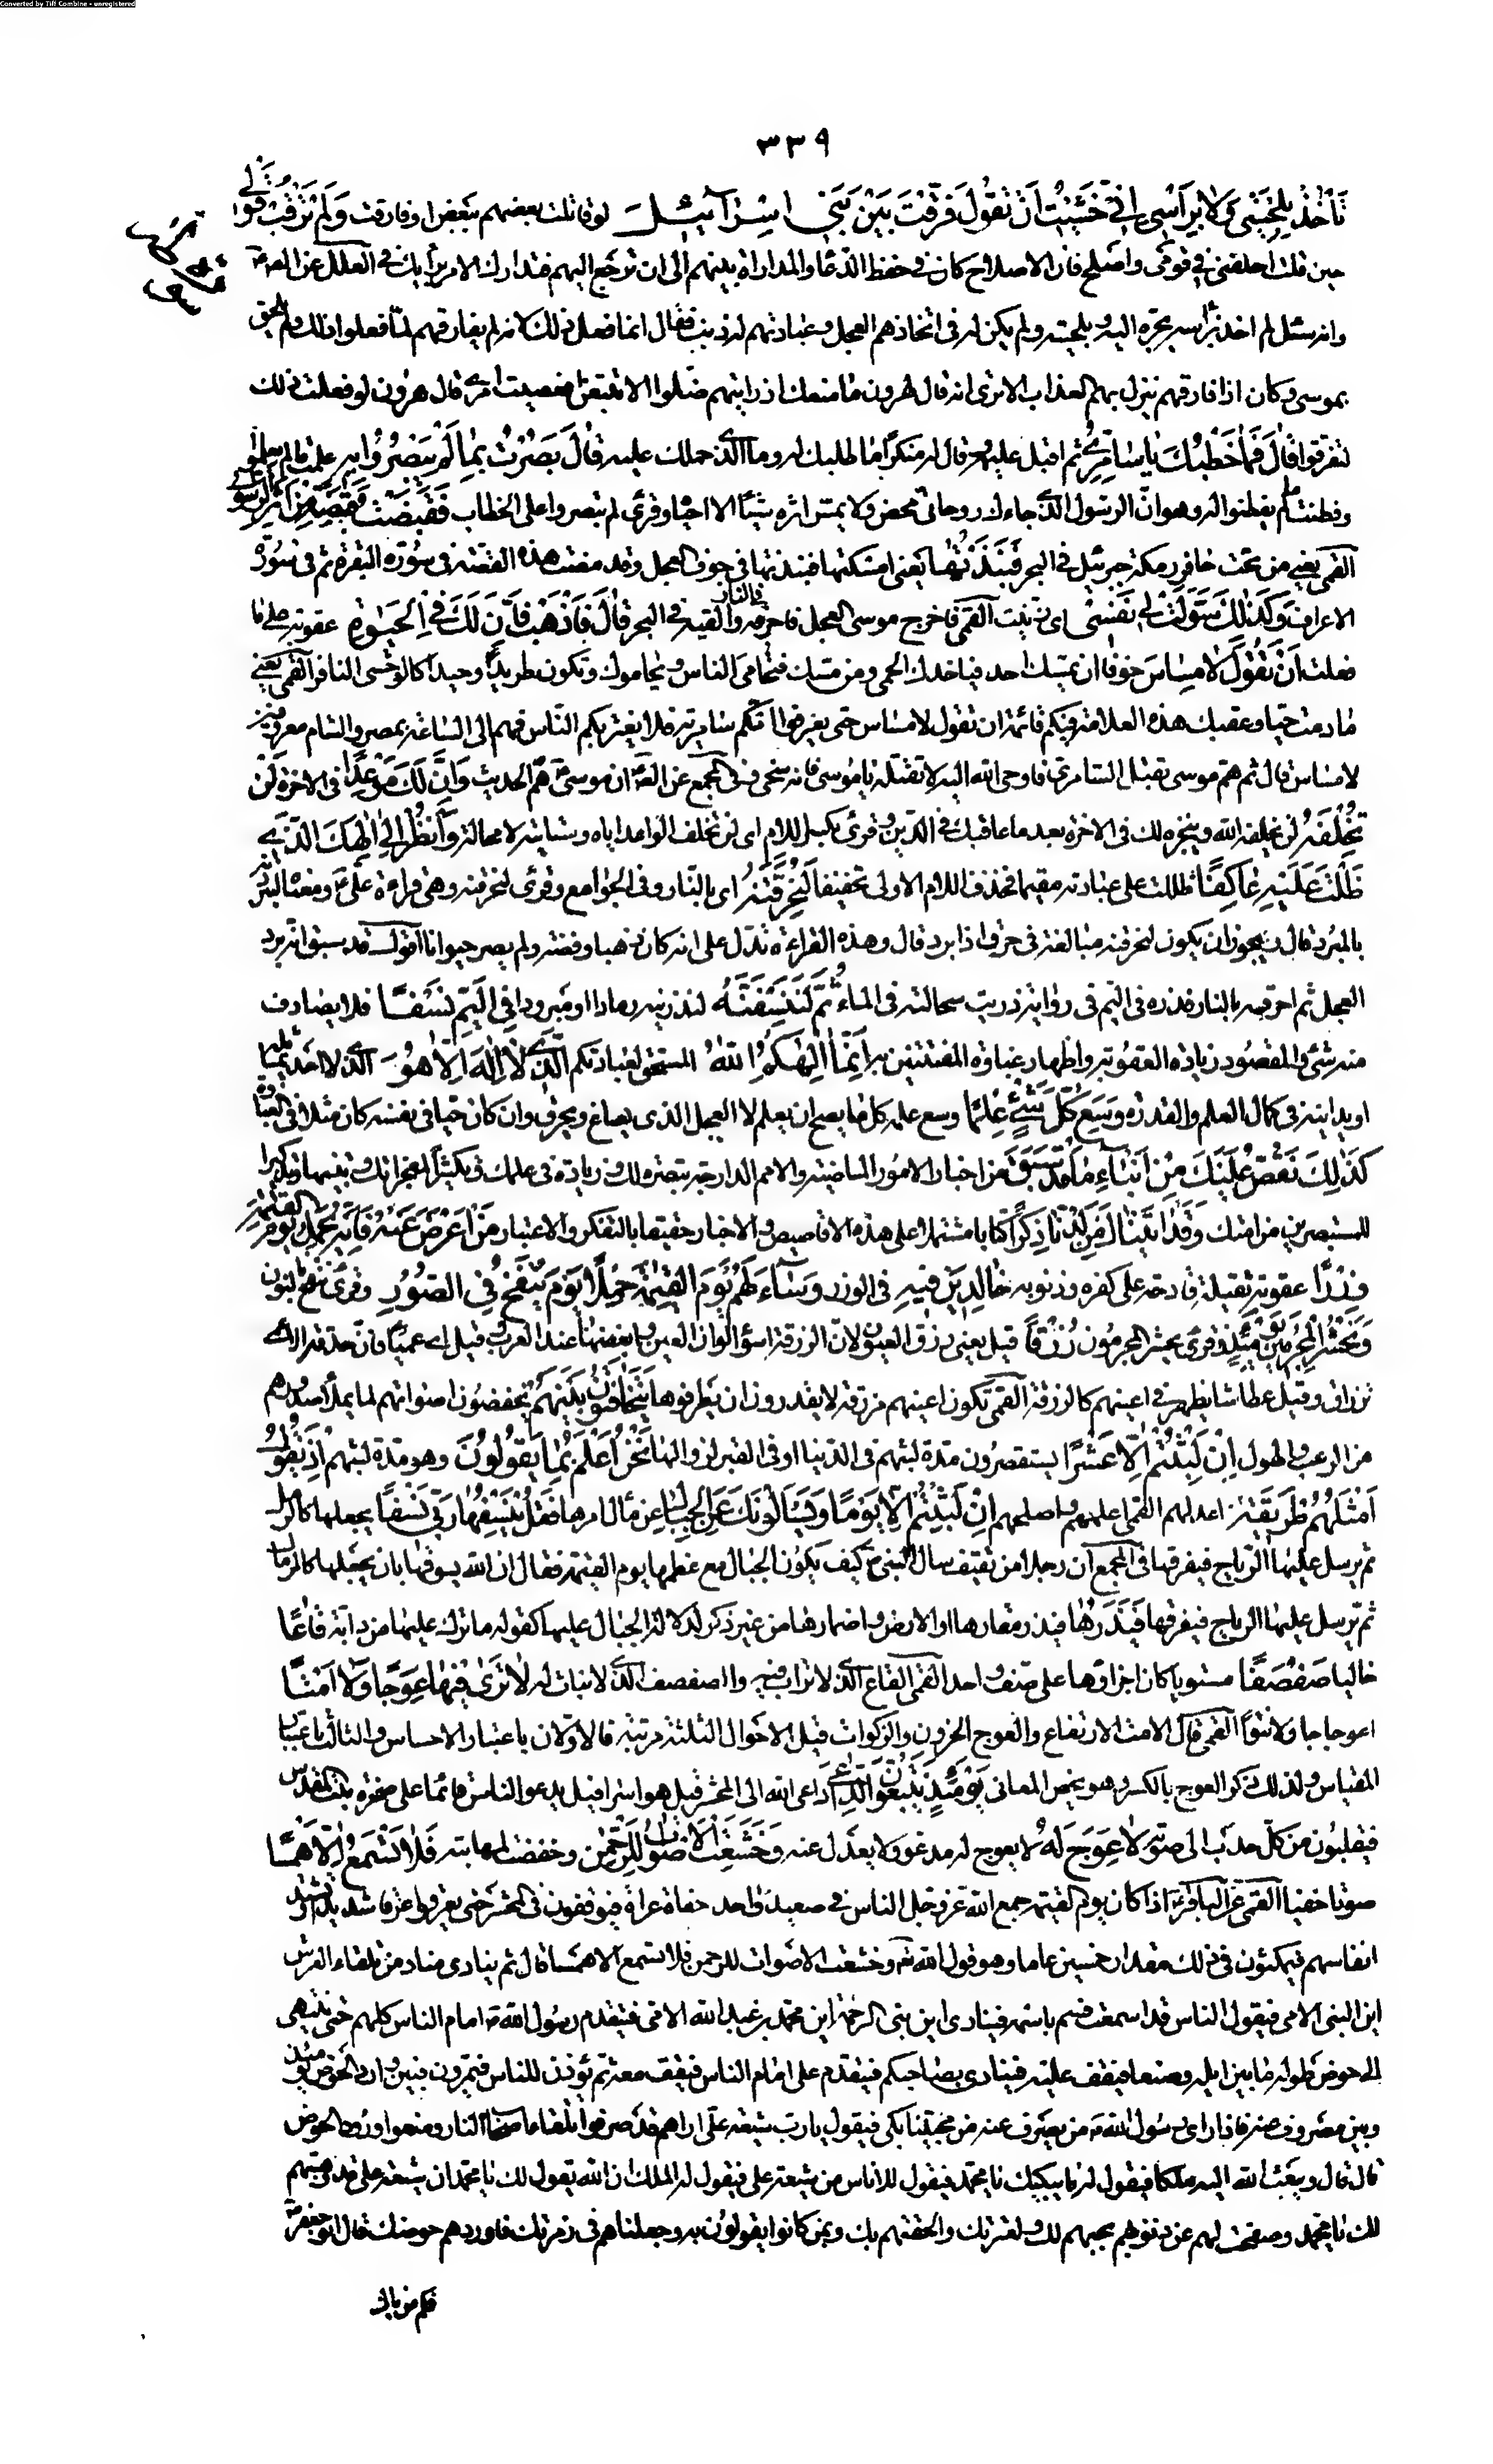 Converted by Tiff Combine - unregistered
٣٣٩
تَأْخُذْ بِلِحْيَتِي وَلَا بِرَأْسِي إِنِّي خَشِيتُ أَنْ تَقُولَ فَرَّقْتَ بَيْنَ بَنِي إِسْرَآئِيلَ لو قاتلت بعضهم ببعض او فارقت وَلَمْ تَرْقُبْ قَوْلِي
حين قلت اخلفني في قومي واصلح فان الاصلاح كان في حفظ الدهماء والمداراة بينهم الى ان ترجع اليهم فتدارك الامر برأيك في العلل عن الصادق
وانه سئل لم اخذ برأسه يجره اليه وبلحيته ولم يكن له في اتخاذهم العجل وعبادتهم له ذنب فقال انما فعل ذلك لانه لم يفارقهم لما فعلوا ذلك ولم يلحق
بموسى وكان اذا فارقهم ينزل بهم العذاب الا ترى انه قال لهرون ما منعك اذ رايتهم ضلوا الا تتبعن افعصيت امري قال هرون لو فعلت ذلك
لتفرقوا قَالَ فَمَا خَطْبُكَ يَا سَامِرِيُّ ثم اقبل عليه وقال له منكرا ما طلبك له وما الذي حملك عليه قَالَ بَصُرْتُ بِمَا لَمْ يَبْصُرُوا بِهِ علمت ما لم يعلموا
وفطنت لما لم يفطنوا له وهو ان الرسول الذي جاءك روحاني محض ولا يمس اثره شيئا الا احياه وقرئ لم تبصروا على الخطاب فَقَبَضْتُ قَبْضَةً مِنْ أَثَرِ الرَّسُولِ
القمي يعني من تحت حافر رمكة جبرئيل في البحر فَنَبَذْتُهَا يعني امسكتها فنبذتها في جوف العجل وقد مضت هذه القصة في سورة البقرة ثم في سورة
الاعراف وَكَذَلِكَ سَوَّلَتْ لِي نَفْسِي اي زينت القمي فاخرج موسى العجل فاحرقه في النار والقيه في البحر قَالَ فَاذْهَبْ فَإِنَّ لَكَ فِي الْحَيٰوةِ عقوبة على ما
فعلت أَنْ تَقُولَ لَا مِسَاسَ خوفا ان يمسك احد فياخذك الحمى ومن مسك فتحامى الناس ويحاموك وتكون طريدا وحيدا كالوحشي النافر القمي يعني
ما دمت حيا وعقبك هذه العلامة فيكم قائمة ان تقول لا مساس حتى يعرفوا انكم سامرية فلا يغتر بكم الناس فهم الى الساعة بمصر والشام معروفين
لا مساس قال ثم هم موسى بقتل السامري فاوحى الله اليه لا تقتله يا موسى فانه سخي وفي المجمع عن الصادق ان موسى هم الحديث وَإِنَّ لَكَ مَوْعِدًا في الاخرة لَنْ
تُخْلَفَهُ لن يخلفه الله وينجزه لك في الاخرة بعد ما عاقبك في الدنيا وقرئ بكسر اللام اي لن تخلف الواعد اياه وستأتيه لا محالة وَانْظُرْ إِلَى إِلٰهِكَ الَّذِي
ظَلْتَ عَلَيْهِ عَاكِفًا ظللت على عبادته مقيما فحذف اللام الاولى تخفيفا لَنُحَرِّقَنَّهُ اي بالنار وفي الجوامع وقرئ لنحرقنه وهي قراءة علي ومعناه لنبردنه
بالمبرد قال ويجوز ان يكون لنحرقنه مبالغة في حرق اذا برد قال وهذه القراءة تدل على انه كان ذهبا وفضة ولم يصر حيوانا اقول قد سبق انه برد
العجل ثم احرقه بالنار فذره في اليم في رواية ذريت سحالته في الماء ثُمَّ لَنَنْسِفَنَّهُ لنذرينه رمادا او مبرودا فِي الْيَمِّ نَسْفًا فلا يصادف
منه شيء والمقصود زيادة العقوبة واظهار غباوة المفتتنين به إِنَّمَا إِلٰهُكُمُ اللّٰهُ المستحق لعبادتكم الَّذِي لَا إِلٰهَ إِلَّا هُوَ الذي لا احد يماثله
او يدانيه في كمال العلم والقدرة وَسِعَ كُلَّ شَيْءٍ عِلْمًا وسع علمه كل ما يصح ان يعلم لا العجل الذي يصاغ ويحرق وان كان حيا في نفسه كان مثلا في الغباوة
كَذٰلِكَ نَقُصُّ عَلَيْكَ مِنْ أَنْبَآءِ مَا قَدْ سَبَقَ من اخبار الامور الماضية والامم الدارجة تبصرة لك وزيادة في علمك وتكثيرا لمعجزاتك وتنبيها وتذكيرا
للمستبصرين من امتك وَقَدْ آتَيْنَاكَ مِنْ لَدُنَّا ذِكْرًا كتابا مشتملا على هذه الاقاصيص والاخبار حقيقا بالتفكر والاعتبار مَنْ أَعْرَضَ عَنْهُ فَإِنَّهُ يَحْمِلُ يَوْمَ الْقِيٰمَةِ
وِزْرًا عقوبة ثقيلة فادحة على كفره وذنوبه خَالِدِينَ فِيهِ في الوزر وَسَآءَ لَهُمْ يَوْمَ الْقِيٰمَةِ حِمْلًا يَوْمَ يُنْفَخُ فِي الصُّورِ وقرئ ننفخ بالنون
وَنَحْشُرُ الْمُجْرِمِينَ يَوْمَئِذٍ وقرئ يحشر المجرمون زُرْقًا قيل يعني زرق العيون لان الزرقة اسوأ الوان العين وابغضها عند العرب وقيل اي عميا فان حدقة الاعمى
تزراق وقيل عطاشا يظهر في اعينهم كالزرقة القمي تكون اعينهم مزرقة لا يقدرون ان يطرفوها يَتَخَافَتُونَ بَيْنَهُمْ يخفضون اصواتهم لما يملأ صدورهم
من الرعب والهول إِنْ لَبِثْتُمْ إِلَّا عَشْرًا يستقصرون مدة لبثهم في الدنيا او في القبر لزوالها نَحْنُ أَعْلَمُ بِمَا يَقُولُونَ وهو مدة لبثهم إِذْ يَقُولُ
أَمْثَلُهُمْ طَرِيقَةً اعدلهم القمي اعلمهم واصلحهم إِنْ لَبِثْتُمْ إِلَّا يَوْمًا وَيَسْأَلُونَكَ عَنِ الْجِبَالِ عن مآل امرها فَقُلْ يَنْسِفُهَا رَبِّي نَسْفًا يجعلها كالرمل
ثم يرسل عليها الرياح فيفرقها في المجمع ان رجلا من ثقيف سأل النبي كيف يكون الجبال مع عظمها يوم القيمة فقال ان الله يسوقها بان يجعلها كالرمال
ثم يرسل عليها الرياح فيفرقها فَيَذَرُهَا فيذر مقارها او الارض واضمارها من غير ذكر لدلالة الجبال عليها كقوله ما ترك عليها من دابة قَاعًا
خاليا صَفْصَفًا مستويا كان اجزاؤها على صف واحد القمي القاع الذي لا تراب فيه والصفصف الذي لا نبات له لَا تَرَى فِيهَا عِوَجًا وَلَا أَمْتًا
اعوجاجا ولا نتوا القمي قال الامت الارتفاع والعوج الحزون والذكوات قيل الاحوال الثلثة مرتبة فالاولان باعتبار الاحساس والثالث باعتبار
المقياس ولذلك ذكر العوج بالكسر وهو يخص المعاني يَوْمَئِذٍ يَتَّبِعُونَ الدَّاعِيَ داعي الله الى المحشر قيل هو اسرافيل يدعو الناس قائما على صخرة بيت المقدس
فيقبلون من كل حدب الى صوبه لَا عِوَجَ لَهُ لا يعوج له مدعو ولا يعدل عنه وَخَشَعَتِ الْأَصْوَاتُ لِلرَّحْمٰنِ وخفضت لمهابته فَلَا تَسْمَعُ إِلَّا هَمْسًا
صوتا خفيا القمي عن الباقر اذا كان يوم القيمة جمع الله عز وجل الناس في صعيد واحد حفاة عراة فيوقفون في المحشر حتى يعرقوا عرقا شديدا وتشتد
انفاسهم فيمكثون في ذلك مقدار خمسين عاما وهو قول الله وخشعت الاصوات للرحمن فلا تسمع الا همسا قال ثم ينادي مناد من تلقاء العرش
اين النبي الامي فيقول الناس قد اسمعت فسم باسمه فينادي اين نبي الرحمة اين محمد بن عبد الله الامي فيتقدم رسول الله امام الناس كلهم حتى ينتهي
الى حوض طوله ما بين ايلة وصنعا فيقف عليه فينادي بصاحبكم فيتقدم علي امام الناس فيقف معه ثم يؤذن للناس فيمرون فبين وارد الحوض يومئذ
وبين مصروف عنه فاذا راى رسول الله من يصرف عنه من محبينا بكى فيقول يا رب شيعة علي اراهم قد صرفوا تلقاء اصحاب النار ومنعوا ورود الحوض
قال قال ويبعث الله اليه ملكا فيقول له ما يبكيك يا محمد فيقول للاناس من شيعة علي فيقول له الملك ان الله يقول لك يا محمد ان شيعة علي قد وهبتهم
لك يا محمد وصفحت لهم عن ذنوبهم بحبهم لك ولعترتك والحقتهم بك وبمن كانوا يقولون به وجعلناهم في زمرتك فاوردهم حوضك قال ابو جعفر
فكم من باك